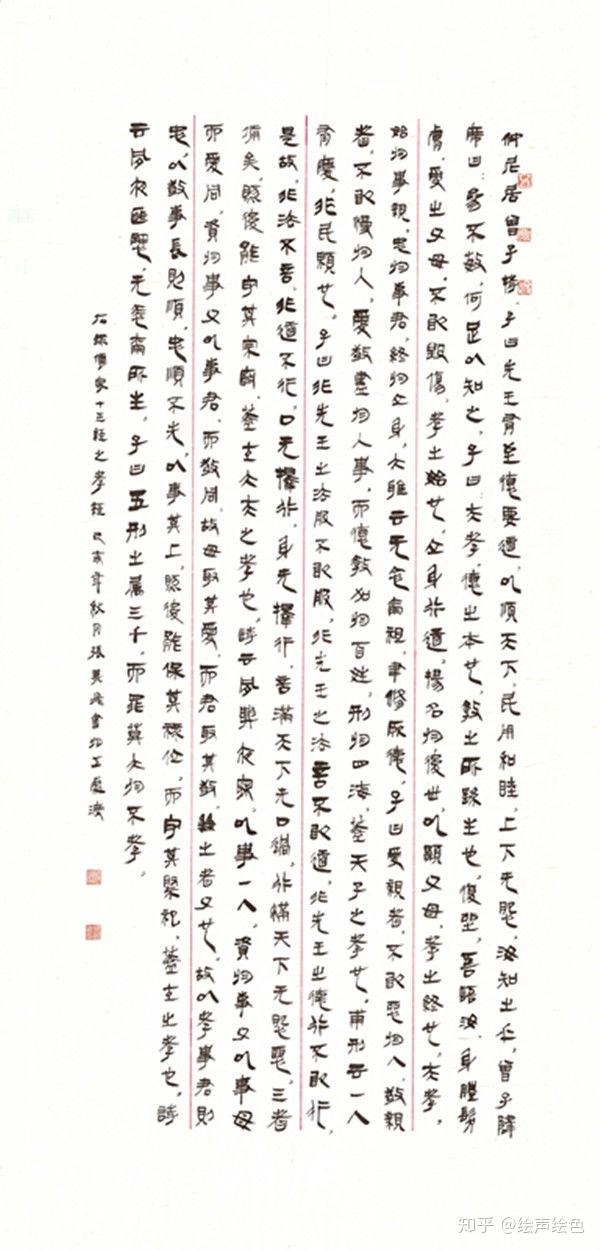 仲尼居，曾子侍，子曰先王有至德要道，以順天下，民用和睦，上下无怨，汝知之乎，曾子避
席曰：參不敏，何足以知之，子曰：夫孝，德之本也，教之所繇生也，復坐，吾語汝，身體髮
膚，受之父母，不敢毀傷，孝之始也，立身行道，揚名於後世，以顯父母，孝之終也，夫孝，
始於事親，忠於事君，終於立身，大雅云无念爾祖，聿修厥德，子曰愛親者，不敢惡於人，敬親
者，不敢慢於人，愛敬盡於人事，而德教加於百姓，形於四海，蓋天子之孝也，甫刑云一人
有慶，兆民賴也，子曰非先王之法服不敢服，非先王之法言不敢道，非先王之德行不敢行，
是故，非法不言，非道不行，口无擇言，身无擇行，言滿天下无口過，行滿天下无怨惡，三者
備矣，然後能守其宗廟，蓋卿大夫之孝也，詩云夙興夜寐，以事一人，資於事父以事母
而愛同，資於事父以事君，而敬同，故母取其愛，而君取其敬，兼之者父也，故以孝事君則
忠，以敬事長則順，忠順不失，以事其上，然後能保其祿位，而守其祭祀，蓋士之孝也，詩
云夙夜匪懈，无忝爾所生，子曰五刑之屬三千，而罪莫大於不孝。
右錄儒家十三経之孝経 己亥年秋月張
知乎 @绘声绘色